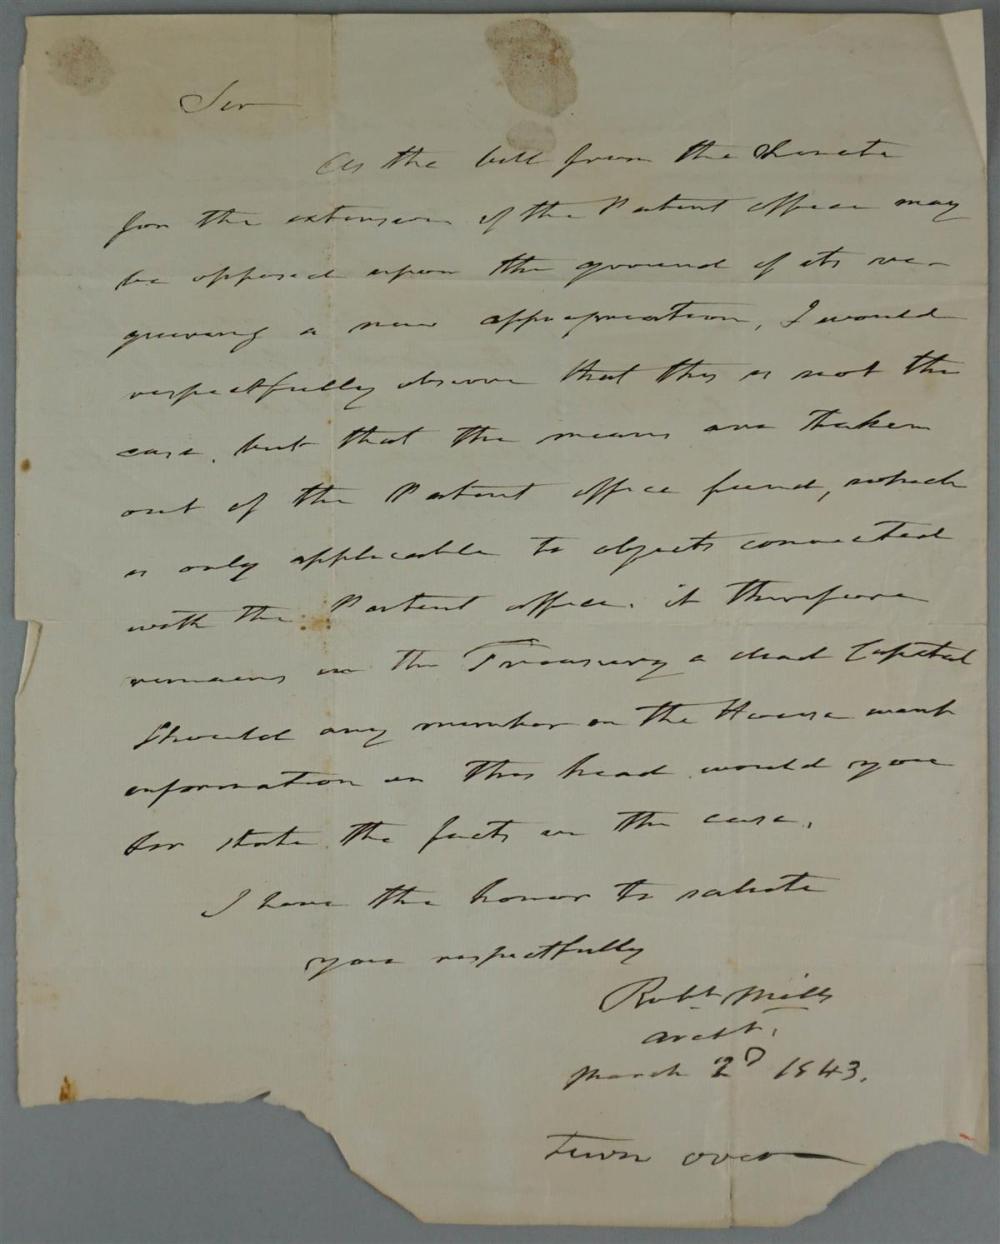 Sir
As the bill from the Senate
for the extension of the Patent office may
be opposed upon the ground of its re-
quiring a new appropriation, I would
respectfully observe that this is not the
case, but that the means are taken
out of the Patent office fund, which
is only applicable to objects connected
with the Patent office. it therefore
remains in the Treasury a dead Capital
Should any member on the House want
information on this head would you
Sir state the facts in the case.
I have the honor to salute
you respectfully
Robt Mills
Archt.
March 2D 1843.
Turn over